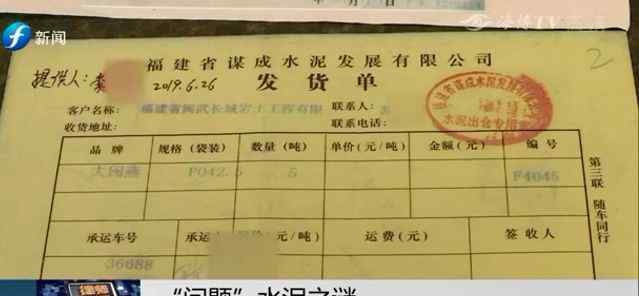 新闻
海博TV
2
福建省谋成水泥发展有限公司
提供人：李
2019.6.26
发货单
客户名称：福建省闽武长城岩土工程有限
联系人：
收货地址：
联系电话：
水泥出仓专用章
品牌 规格（袋装） 数量（吨） 单价（元/吨） 金额（元） 编号
大闽燕 PO42.5 5 F4045
第三联 随车同行
承运车号 承运 （元/吨） 运费（元） 签收人
36688
“问题”水泥之谜